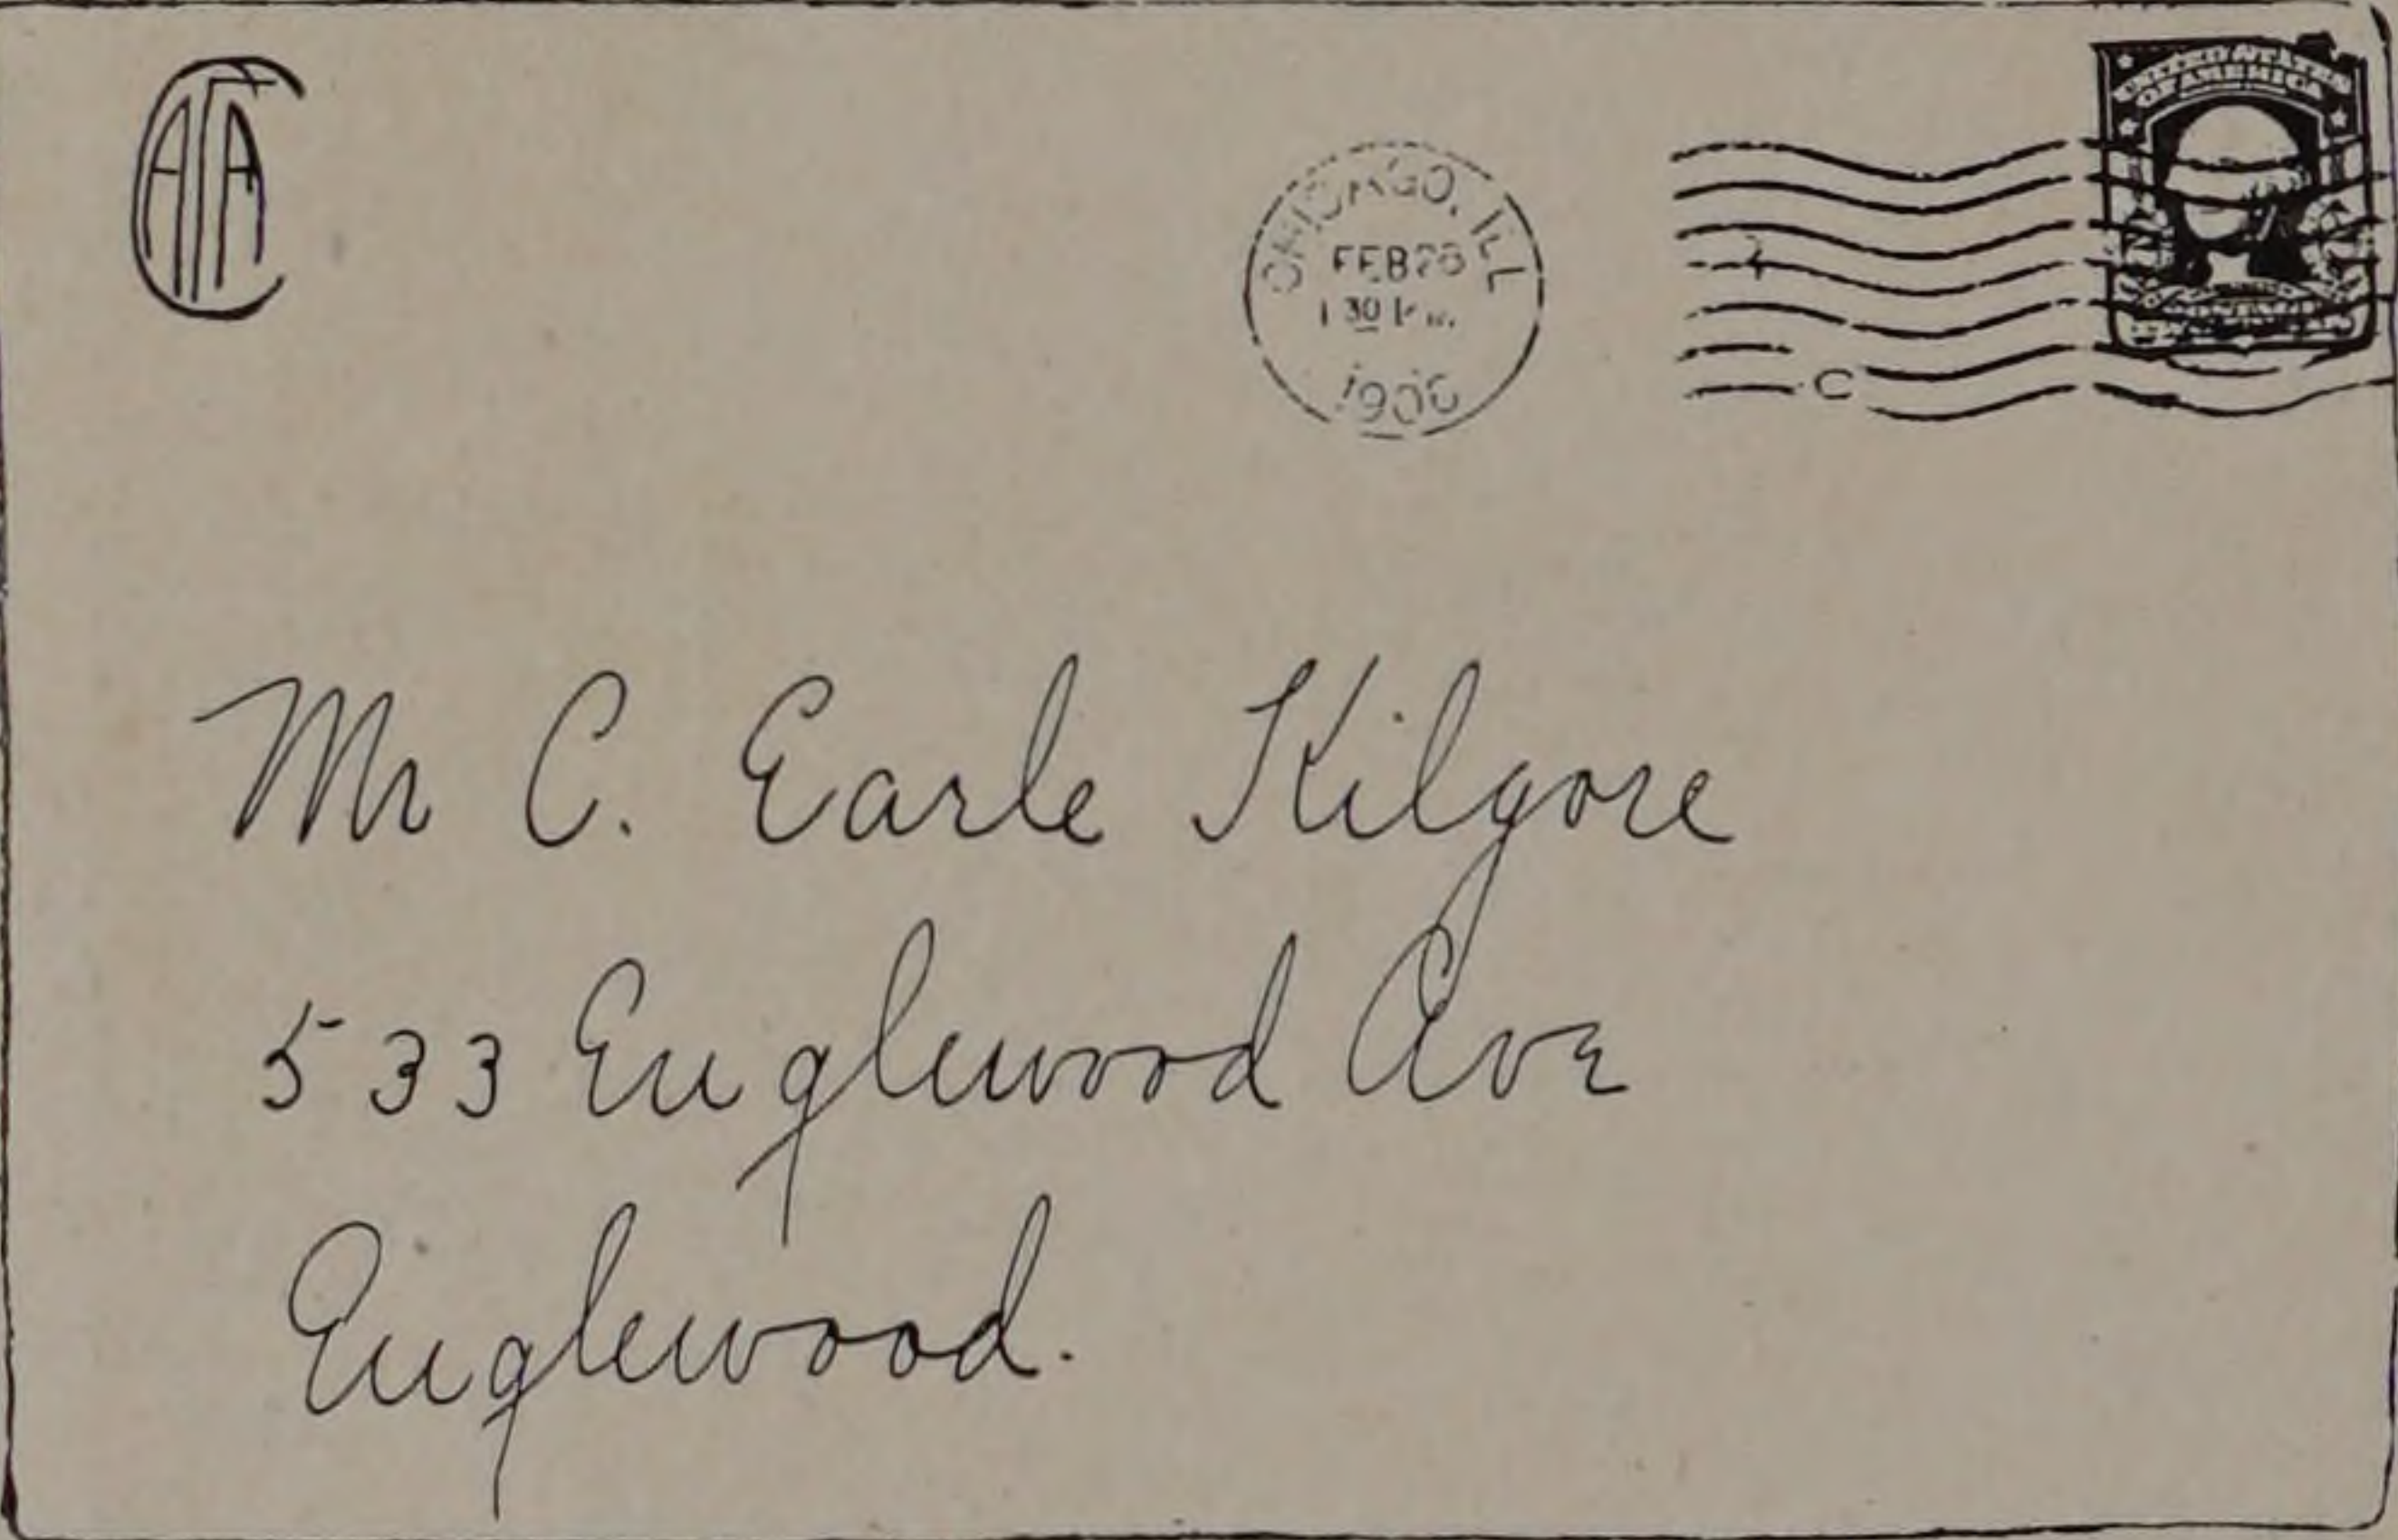 CHICAGO, ILL
FEB 28
1 30 P M.
1906
UNITED STATES
OF AMERICA
C
Mr C. Earle Kilgore
533 Englewood Ave
Englewood.